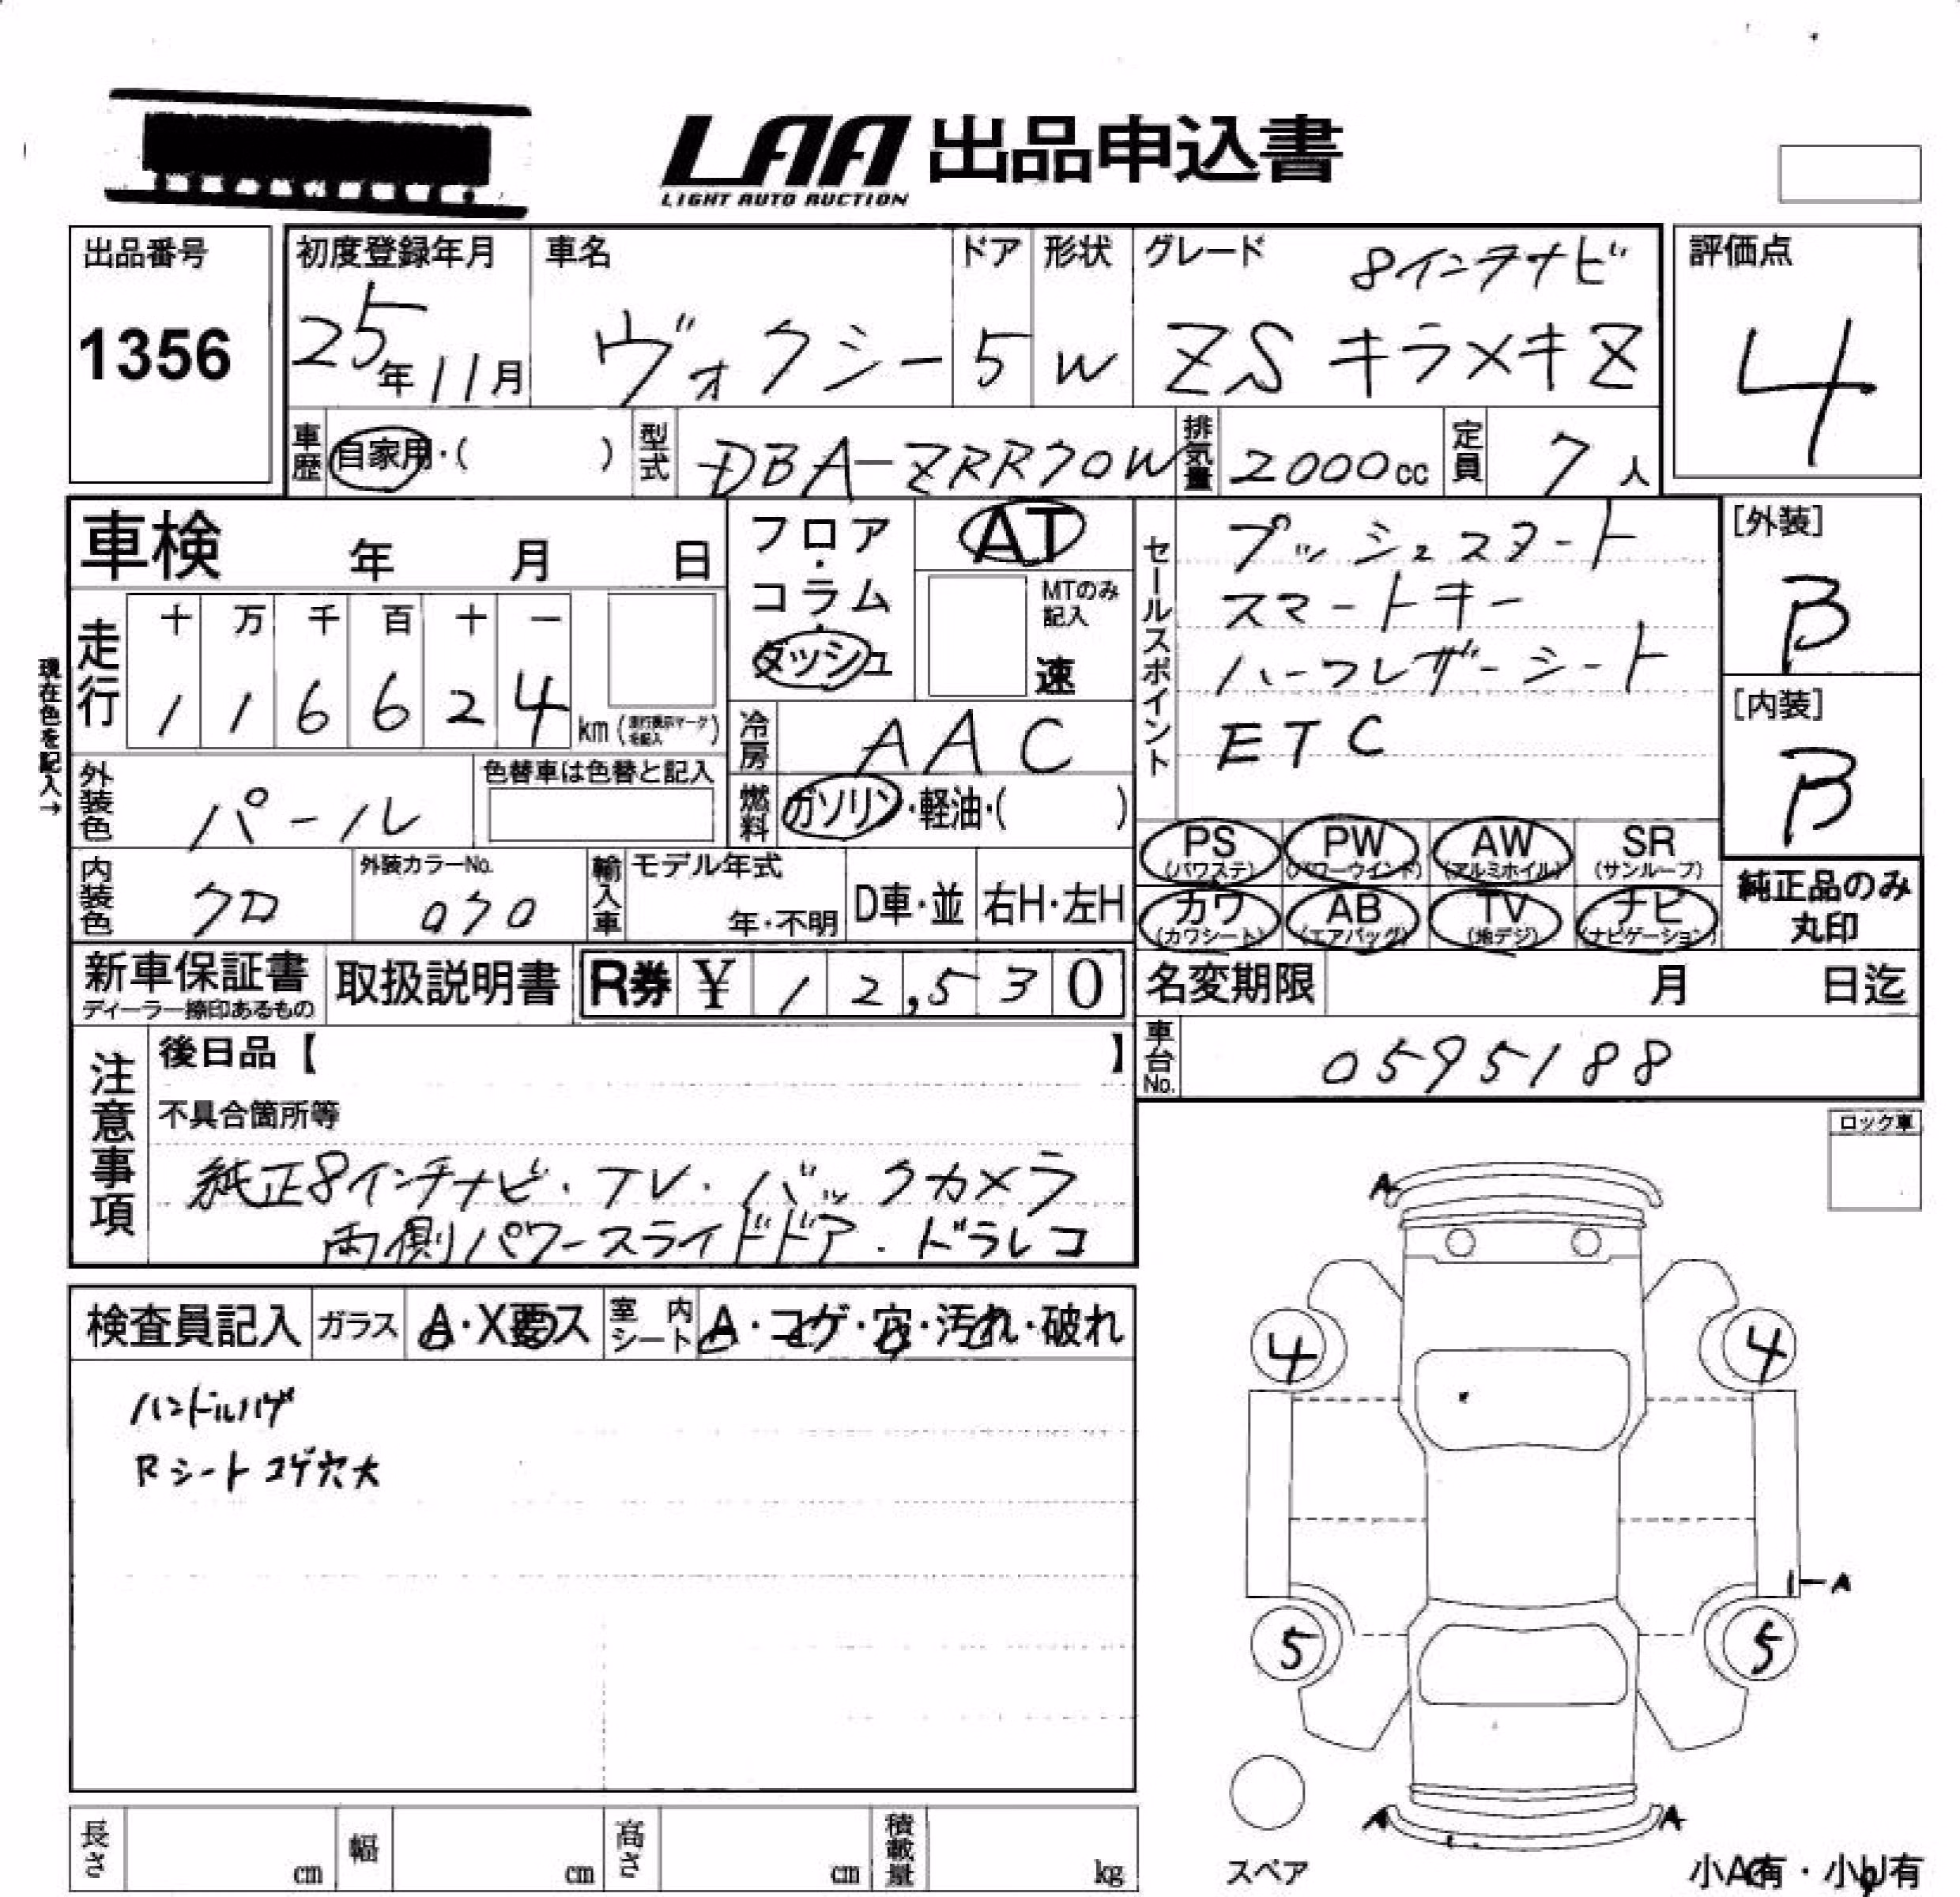 LAA 出品申込書
LIGHT AUTO AUCTION
出品番号
1356
初度登録年月
25年11月
車名
ヴォクシー
ドア
5
形状
W
グレード
8インチナビ
ZS キラメキZ
評価点
4
車歴 自家用・( )
型式 DBA-ZRR70W
排気量 2000cc
定員 7人
車検 年 月 日
フロア・コラム・ダッシュ
AT
MTのみ記入
速
セールスポイント
プッシュスタート
スマートキー
ハーフレザーシート
ETC
[外装]
B
[内装]
B
現在色を記入→
走行
十 万 千 百 十 一
1 1 6 6 2 4 km (走行表示マークを記入)
冷房 AAC
外装色 パール
色替車は色替と記入
燃料 ガソリン・軽油・( )
PS (パワステ) PW (パワーウインド) AW (アルミホイル) SR (サンルーフ)
カワ (カワシート) AB (エアバッグ) TV (地デジ) ナビ (ナビゲーション)
純正品のみ
丸印
内装色 クロ
外装カラーNo.
070
輸入車
モデル年式
年・不明
D車・並
右H・左H
新車保証書
ディーラー捺印あるもの
取扱説明書
R券 ¥ 12,530
名変期限 月 日迄
車台No. 0595188
注意事項
後日品【 】
不具合箇所等
純正8インチナビ・TV・バックカメラ
両側パワースライドドア・ドラレコ
ロック車
検査員記入 ガラス A・X要ス 室内シート A・コゲ・穴・汚れ・破れ
ハンドルハゲ
Rシートコゲ穴大
A
4 4
A
5 5
A A
スペア
小A有・小U有
長さ cm 幅 cm 高さ cm 積載量 kg